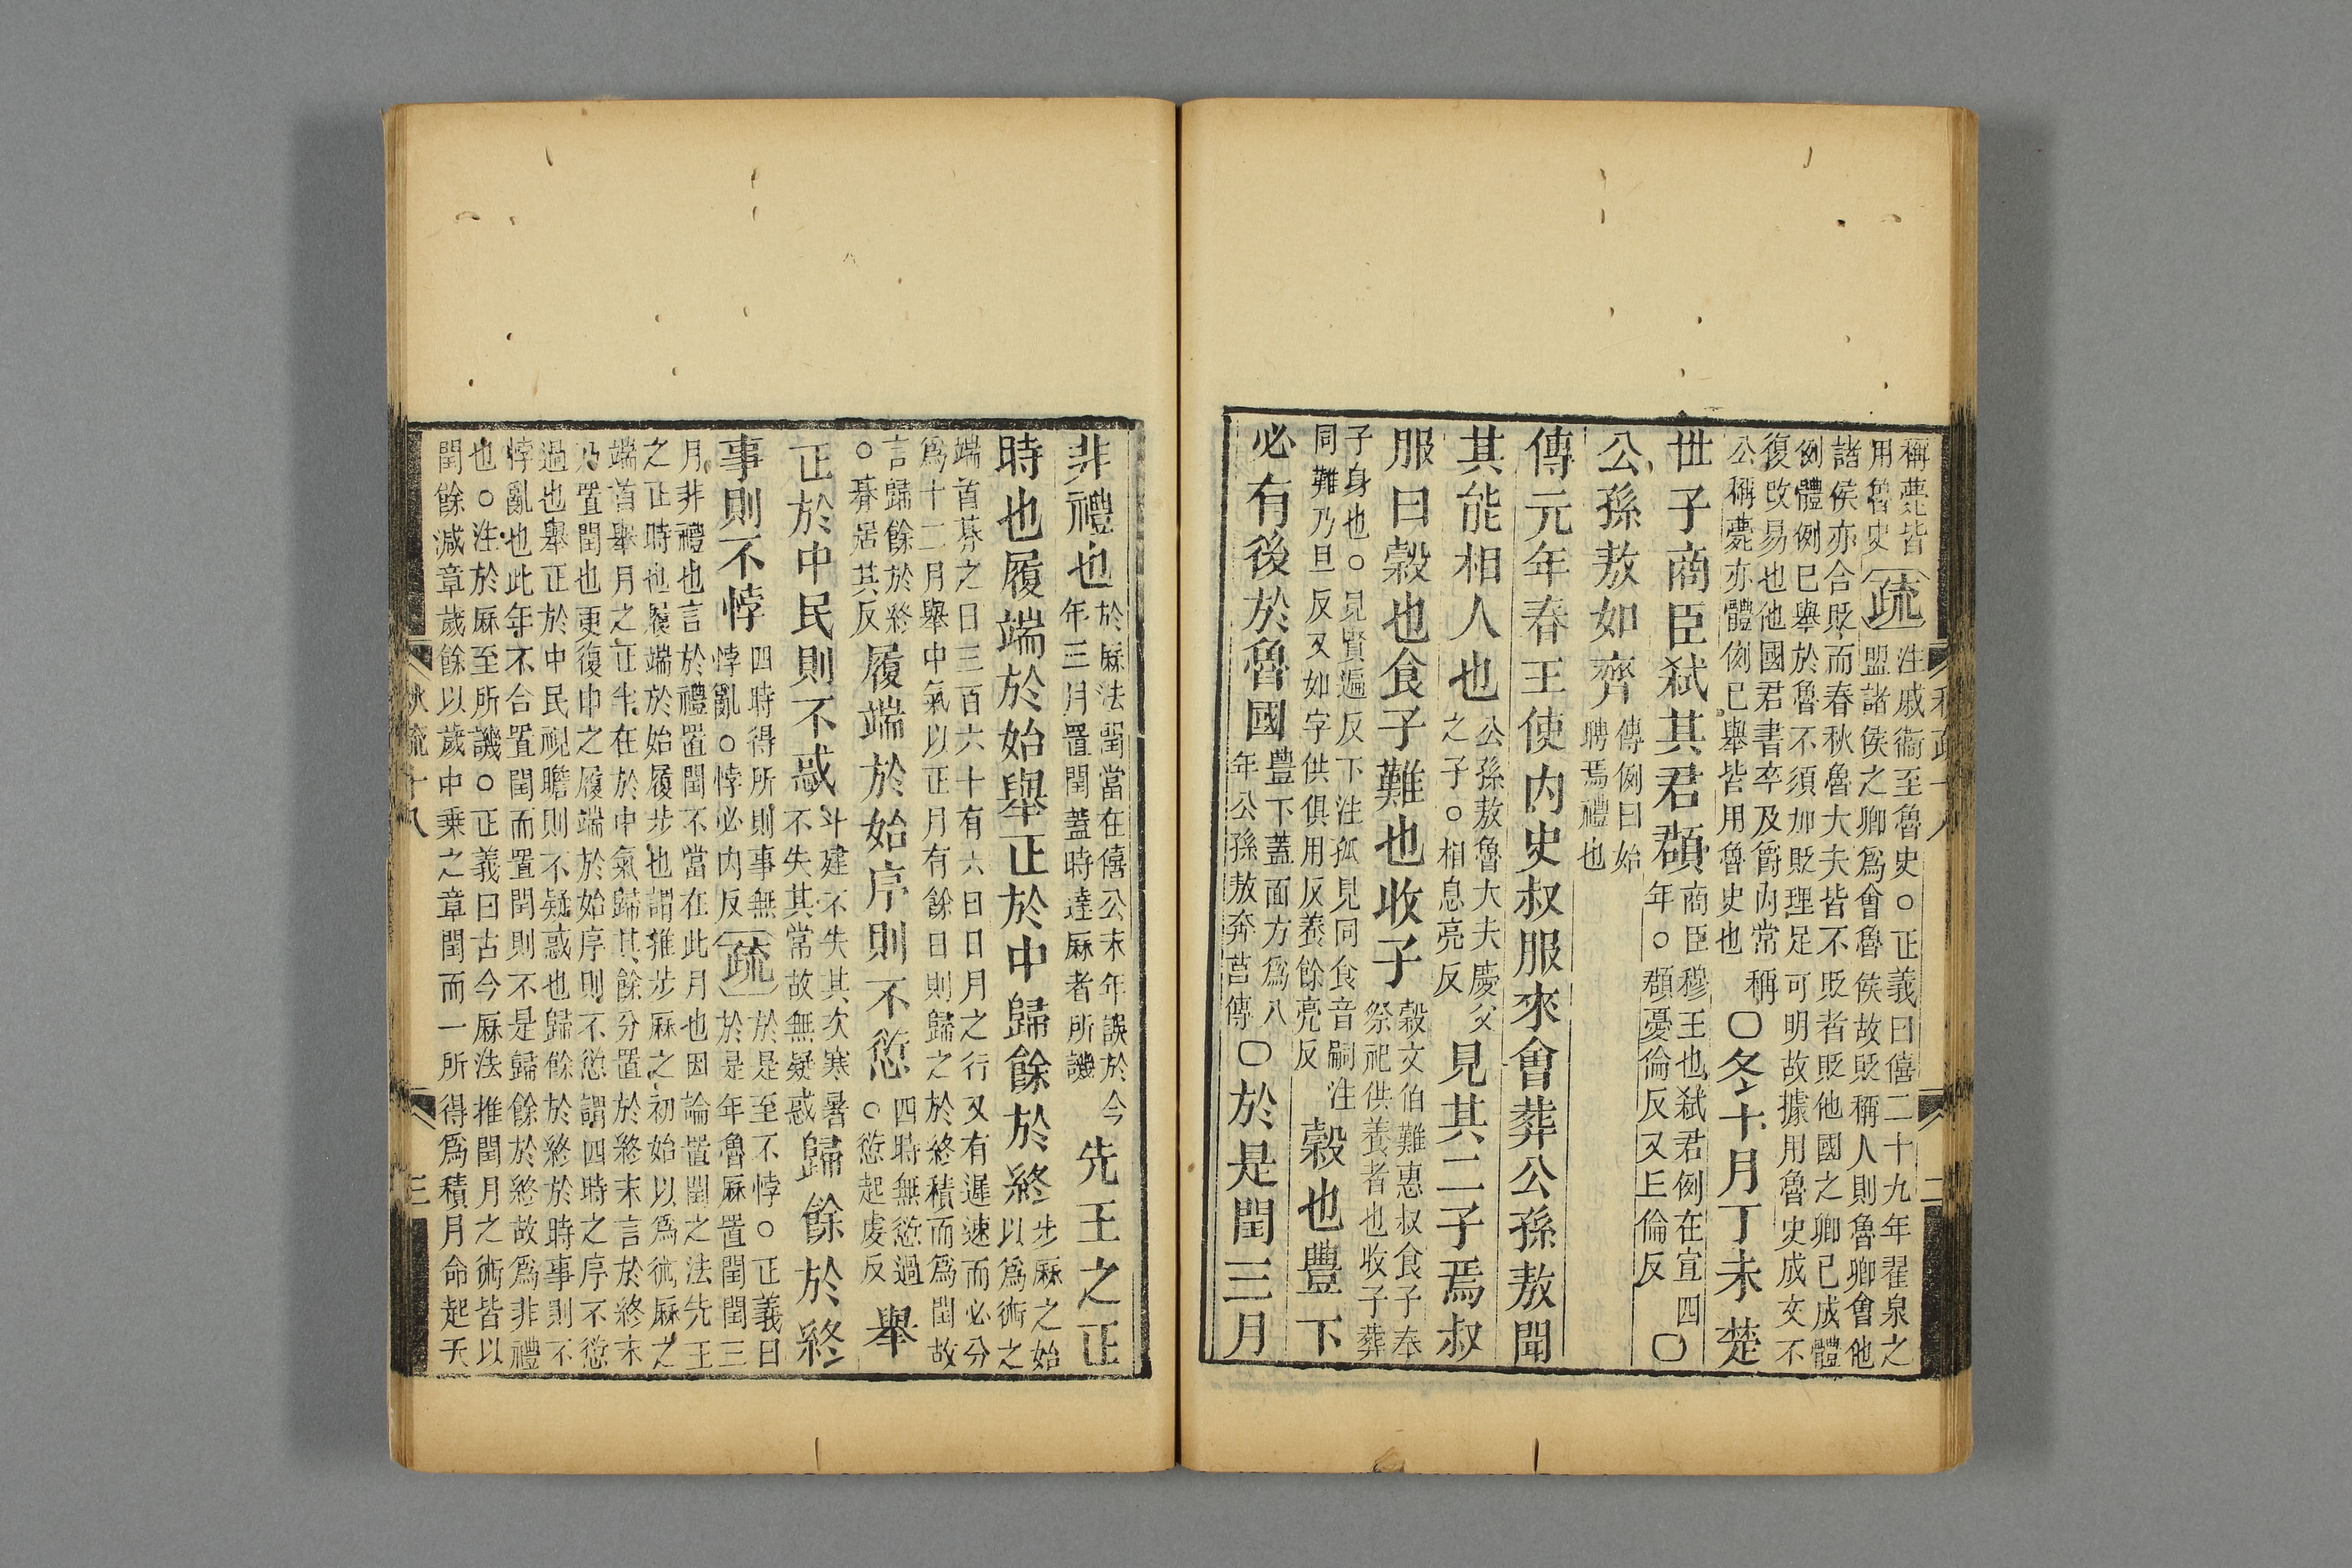 稱薨皆用魯史疏注戚衞至魯史○正義曰僖二十九年翟泉之盟諸侯之卿爲會魯侯故貶稱人則魯卿會他
諸侯亦合貶而春秋魯大夫皆不貶者貶他國之卿已成體
例體例已舉於魯不須加貶理足可明故據用魯史成文不
復改易也他國君書卒及爵内常稱公稱薨亦體例已舉皆用魯史也○冬十月丁未楚
世子商臣弒其君頵商臣穆王也弒君例在宣四年○頵憂倫反又上倫反○
公孫敖如齊傳例曰始聘焉禮也
傳元年春王使内史叔服來會葬公孫敖聞
其能相人也公孫敖魯大夫慶父之子○相息亮反見其二子焉叔
服曰穀也食子難也收子穀文伯難惠叔食子奉祭祀供養者也收子葬
子身也○見賢遍反下注孤見同食音嗣注同難乃旦反又如字供俱用反養餘亮反穀也豐下
必有後於魯國豐下蓋面方爲八年公孫敖奔莒傳○於是閏三月
非禮也於厤法閏當在僖公末年誤於今年三月置閏蓋時達厤者所譏先王之正
時也履端於始舉正於中歸餘於終步厤之始以爲術之
端首朞之日三百六十有六日日月之行又有遲速而必分
爲十二月舉中氣以正月有餘日則歸之於終積而爲閏故
言歸餘於終○朞居其反履端於始序則不愆四時無愆過○愆起虔反舉
正於中民則不惑斗建不失其次寒暑不失其常故無疑惑歸餘於終
事則不悖四時得所則事無悖亂○悖必内反疏於是至不悖○正義曰於是年魯厤置閏閏三
月非禮也言於禮置閏不當在此月也因論置閏之法先王
之正時也履端於始履步也謂推步厤之初始以爲術厤之
端首舉月之正半在於中氣歸其餘分置於終末言於終末
乃置閏也更復申之履端於始序則不愆謂四時之序不愆
過也舉正於中民視瞻則不疑惑也歸餘於終於時事則不
悖亂也此年不合置閏而置閏則不是歸餘於終故爲非禮
也○注於厤至所譏○正義曰古今厤法推閏月之術皆以
閏餘減章歲餘以歲中乘之章閏而一所得爲積月命起天
秋疏十八
三